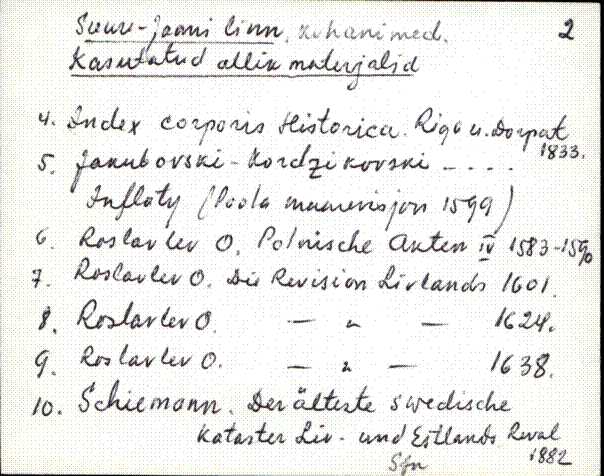 Suure-Jaani linn, kohanimed. 2
Kasutatud allikmaterjalid
4. Index corporis Historica. Riga u. Dorpat
1833.
5. Jakubovski-Kordzikovski - . . .
Inflanty (Poola maarevisjon 1599)
6. Roslavlev O. Polnische Akten IV 1583-1590
7. Roslavlev O. Die Revision Livlands 1601.
8. Roslavlev O. — " — 1624.
9. Roslavlev O. — " — 1638.
10. Schiemann. Der älteste swedische
Kataster Liv- und Estlands Reval
1882